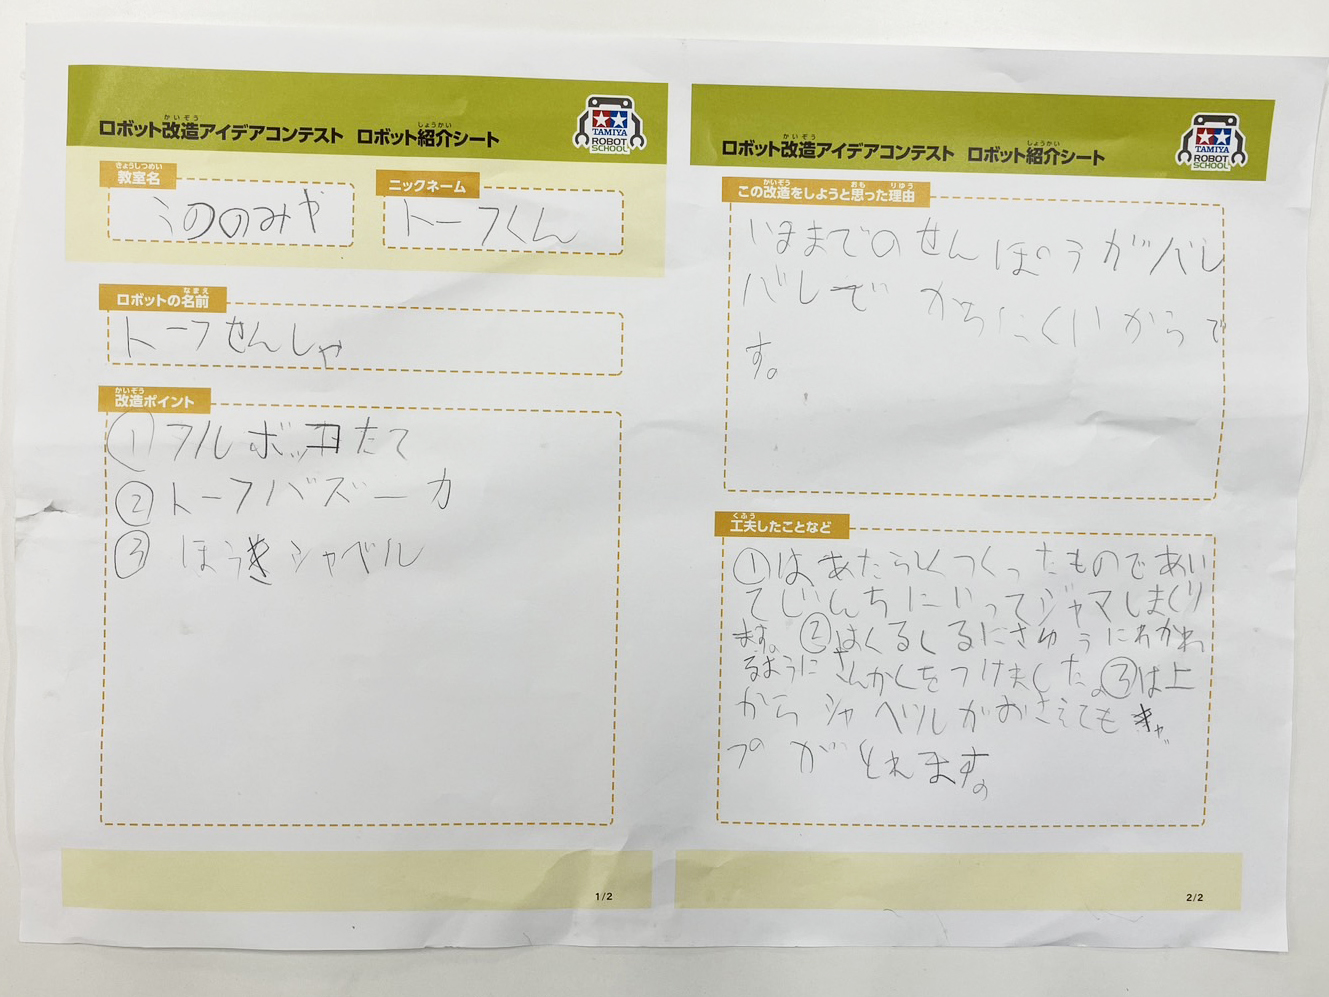 ロボット改造アイデアコンテスト ロボット紹介シート
かいぞう
しょうかい
TAMIYA
ROBOT
SCHOOL
きょうしつめい
教室名
うののみや
ニックネーム
トーフくん
なまえ
ロボットの名前
トーフせんしゃ
かいぞう
改造ポイント
①フルボッコたて
②トーフバズーカ
③ほうきシャベル
1/2
ロボット改造アイデアコンテスト ロボット紹介シート
かいぞう
しょうかい
TAMIYA
ROBOT
SCHOOL
かいぞう おも りゆう
この改造をしようと思った理由
いままでのせんぽうがバレ
バレで かちにくいからで
す。
くふう
工夫したことなど
①は、あたらしくつくったものであい
てじんちにいってジャマしまくり
ます。②はくるしるにさゆうにわかれ
るようにさんかくをつけました。③は上
からシャベルがおさえてもキャ
プがとれます。
2/2